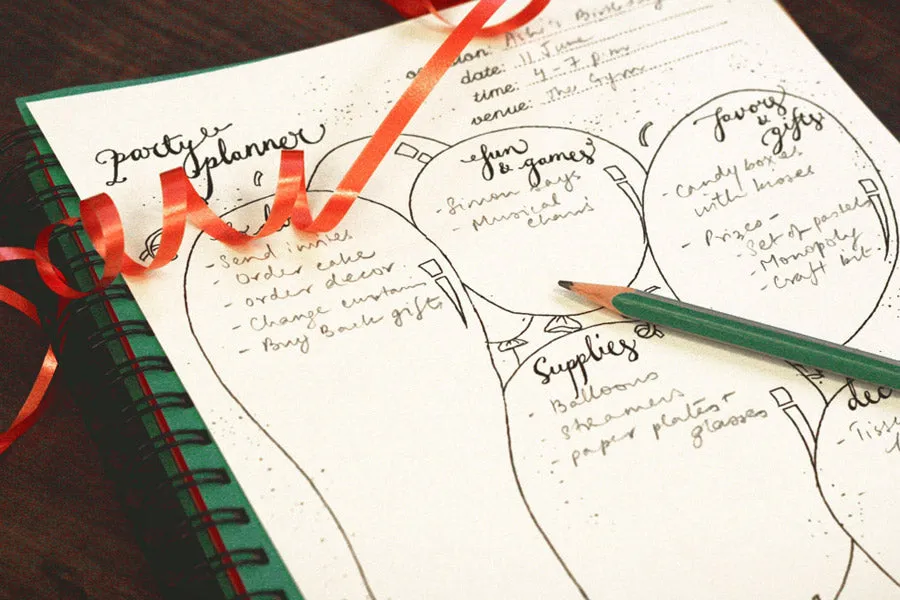 occasion: Ash's Birthday
date: 11 June
time: 4-7 p.m
venue: The Gym
party planner
- Send invies
- Order cake
- order decor
- Change curtains
- Buy Back gifts
fun
& games
- Simon says
- Musical
chairs
favors
&
gifts
- Candy boxes
with kisses
- Prizes -
- Set of pastels
- Monopoly
- Craft kit
Supplies
- Balloons
- streamers
- paper plates +
glasses
dec